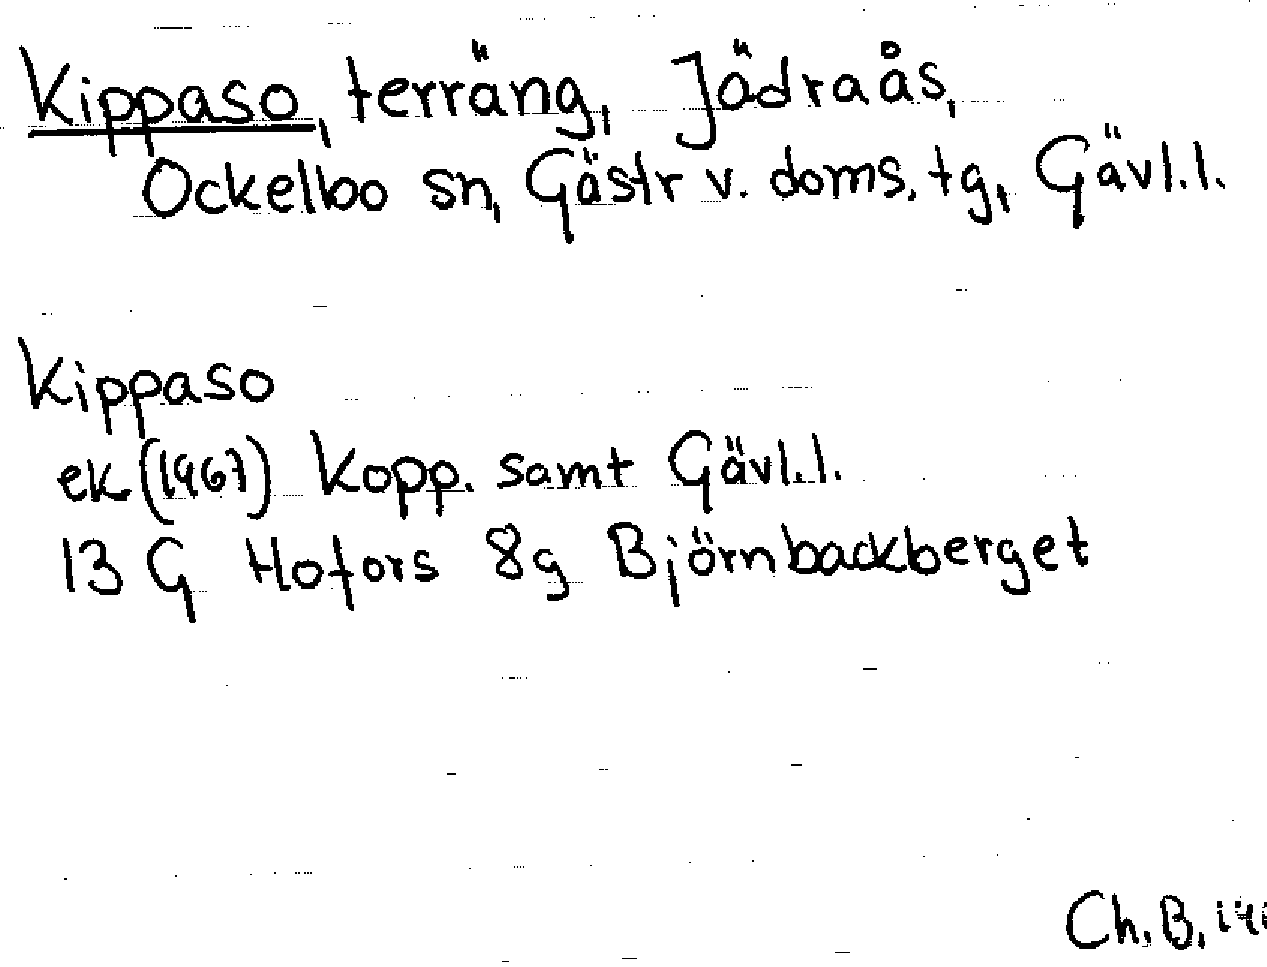 Kippaso, terräng, Jädraås,
Ockelbo sn, Gästr v. doms. tg, Gävl.l.
Kippaso
ek (1967) Kopp. samt Gävl.l.
13 G Hofors 8g Björnbackberget
Ch. B.